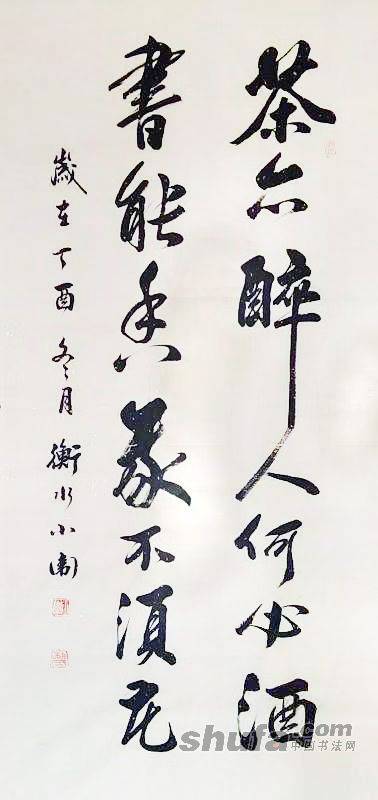 茶亦醉人何必酒
書能香我不須花
歲在丁酉冬月衡水小
shufa.com
中国书法网